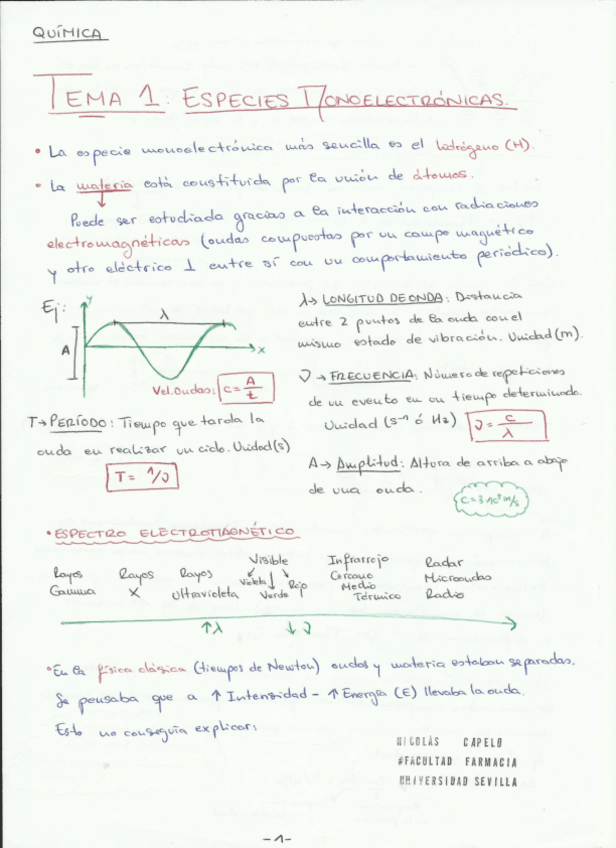 QUÍMICA
TEMA 1: ESPECIES MONOELECTRÓNICAS.
• La especie monoelectrónica más sencilla es el hidrógeno (H).
• La materia está constituida por la unión de átomos.
Puede ser estudiada gracias a la interacción con radiaciones
electromagnéticas (ondas compuestas por un campo magnético
y otro eléctrico ⊥ entre sí con un comportamiento periódico).
Ej:
y
λ
A
x
Vel. Ondas: c = A/t
λ → LONGITUD DE ONDA: Distancia
entre 2 puntos de la onda con el
mismo estado de vibración. Unidad (m).
ν → FRECUENCIA: Número de repeticiones
de un evento en un tiempo determinado.
Unidad (s⁻¹ ó Hz)
ν = c/λ
T → PERÍODO: Tiempo que tarda la
onda en realizar un ciclo. Unidad (s)
T = 1/ν
A → Amplitud: Altura de arriba a abajo
de una onda.
c = 3·10⁸ m/s
• ESPECTRO ELECTROMAGNÉTICO
Rayos Gamma
Rayos X
Rayos Ultravioleta
Visible
Violeta
Verde
Rojo
Infrarrojo
Cercano
Medio
Térmico
Radar
Microondas
Radio
↑λ ↓ν
• En la física clásica (tiempos de Newton) ondas y materia estaban separadas.
Se pensaba que a ↑ Intensidad - ↑ Energía (E) llevaba la onda.
Esto no conseguía explicar:
NICOLÁS CAPELO
#FACULTAD FARMACIA
UNIVERSIDAD SEVILLA
-1-